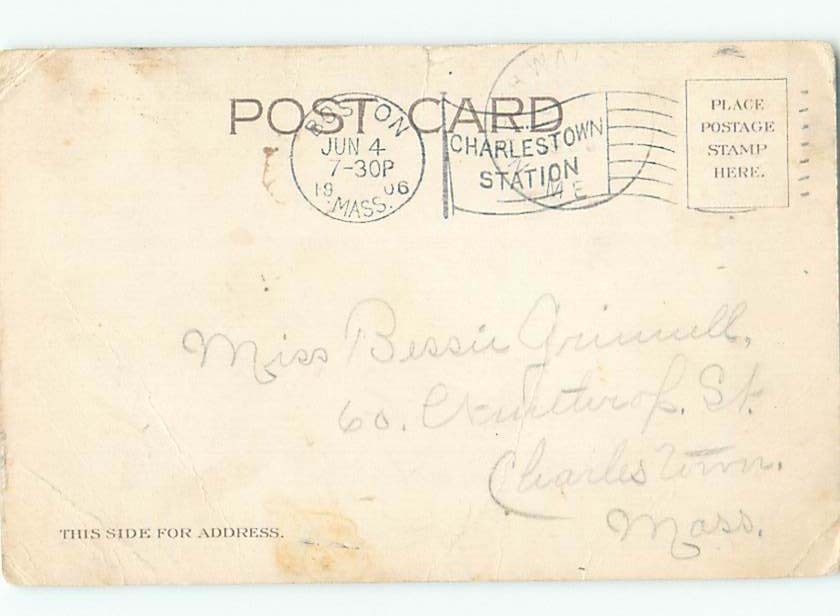 POST CARD
BOSTON
JUN 4
7-30P
19 06
MASS.
CHARLESTOWN
STATION
ME
PLACE
POSTAGE
STAMP
HERE.
Miss Bessie Grinnell,
60. Winthrop. St.
Charlestown.
Mass.
THIS SIDE FOR ADDRESS.